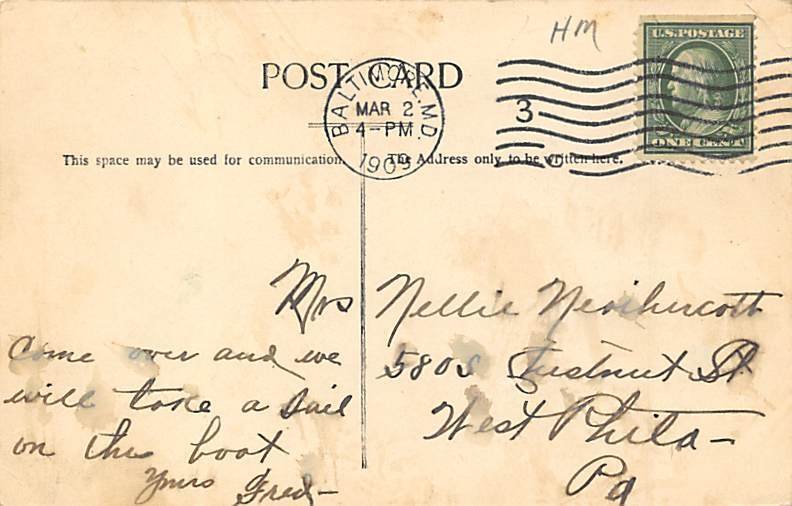 HM
U.S. POSTAGE
ONE CENT
POST CARD
BALTIMORE, MD.
MAR 2
4-PM
1909
3
This space may be used for communication.
The Address only to be written here.
Mrs Nellie
5805 Chestnut St
West Phila-
Pa
Come over and we
will take a Sail
on this boat
Yours Fred-